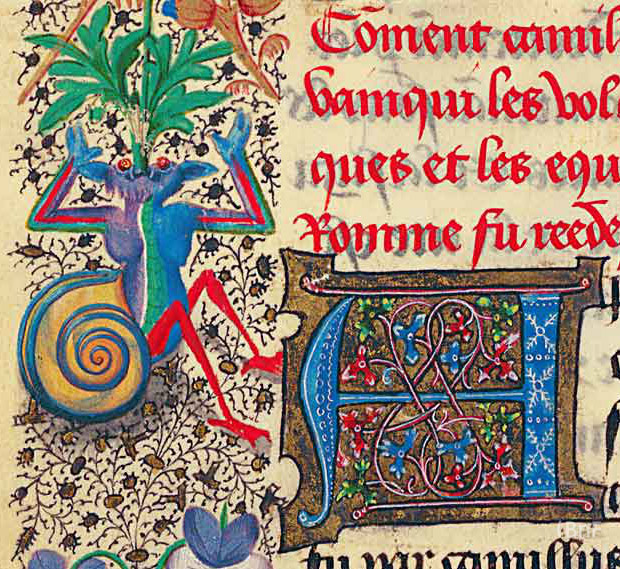 Cōment camil
vainqui les vol
ques et les equ
Romme fu reedē
A
par camillus